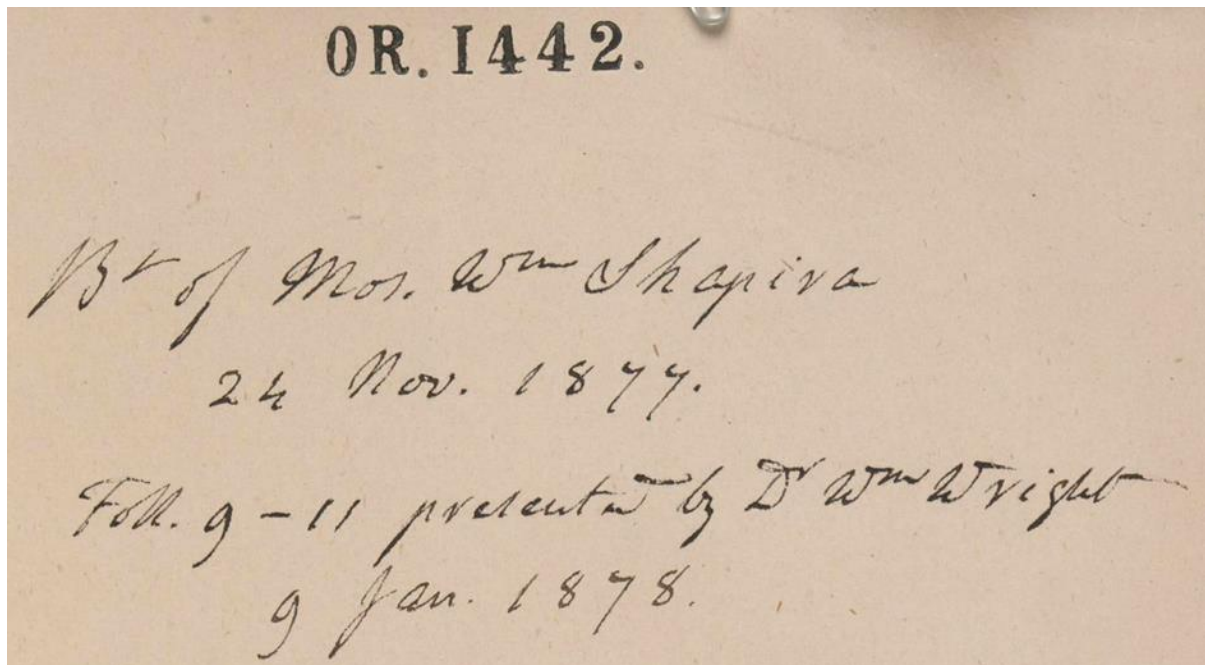 OR. 1442.
Bt of Mos. Wm Shapira
24 Nov. 1877.
Foll. 9-11 presented by Dr Wm Wright
9 Jan. 1878.